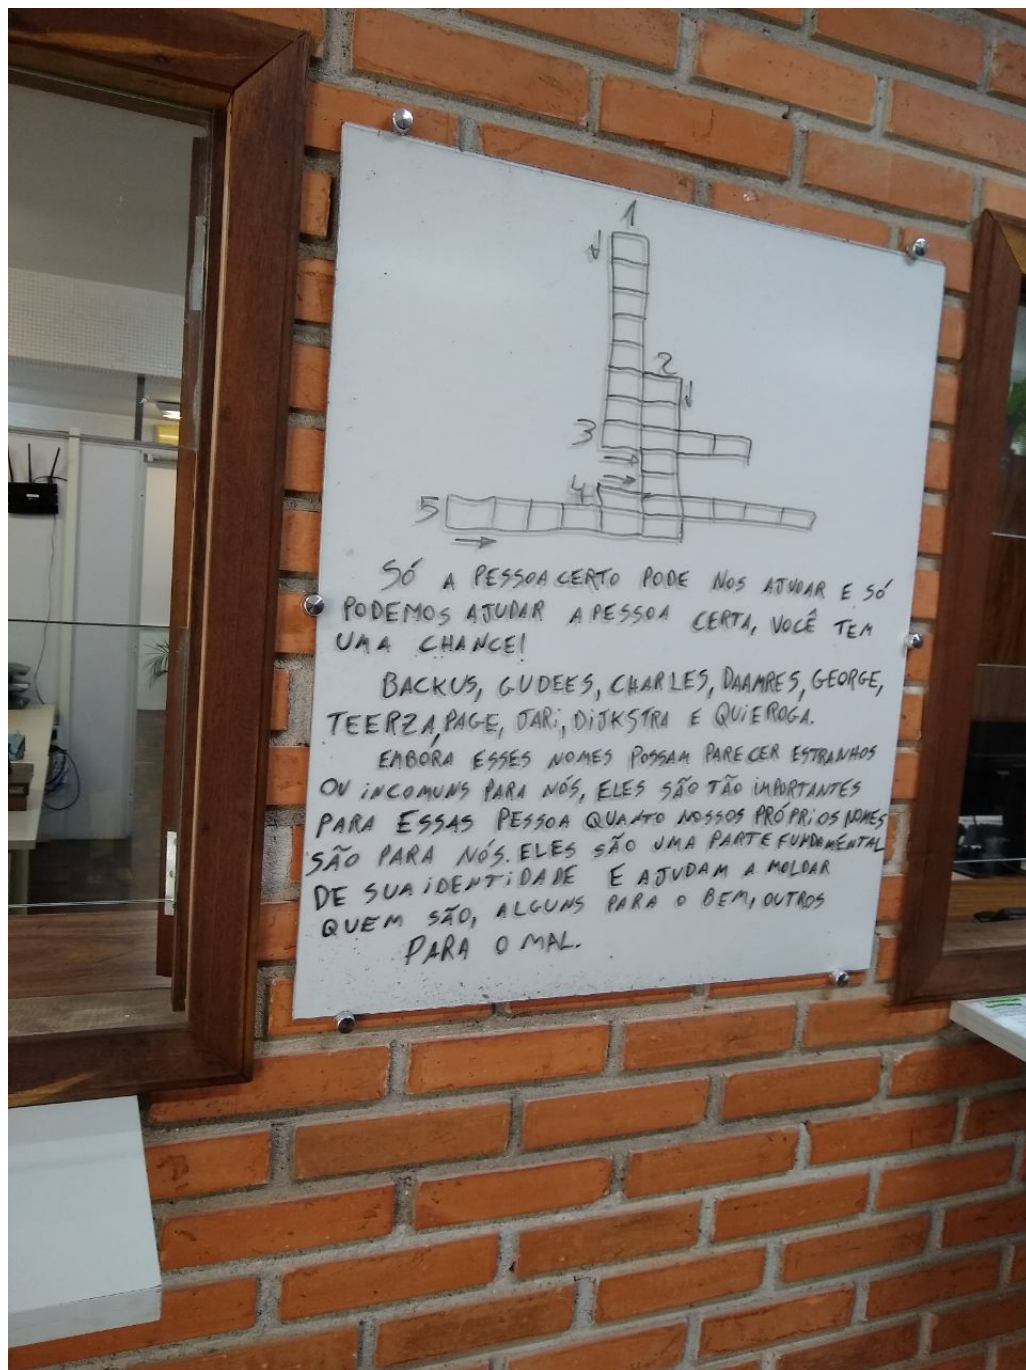 1
2
3
4
5
SÓ A PESSOA CERTO PODE NOS AJUDAR E SÓ
PODEMOS AJUDAR A PESSOA CERTA, VOCÊ TEM
UMA CHANCE!
BACKUS, GUDEES, CHARLES, DAAMRES, GEORGE,
TEERZA, PAGE, JARI, DIJKSTRA E QUIEROGA.
EMBÓRA ESSES NOMES POSSAM PARECER ESTRANHOS
OU INCOMUNS PARA NÓS, ELES SÃO TÃO IMPORTANTES
PARA ESSAS PESSOA QUANTO NOSSOS PRÓPRIOS NOMES
SÃO PARA NÓS. ELES SÃO UMA PARTE FUNDAMENTAL
DE SUA IDENTIDADE E AJUDAM A MOLDAR
QUEM SÃO, ALGUNS PARA O BEM, OUTROS
PARA O MAL.